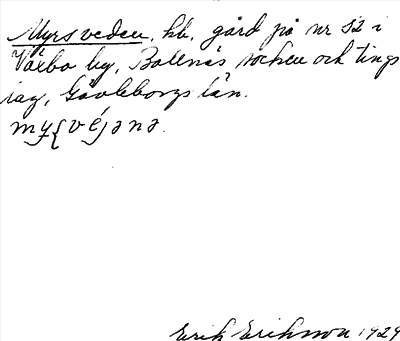 Myrsveden, hb, gård på nr 52 i
Växbo by, Bollnäs socken och tings
lag, Gävleborgs län.
Erik Erikson 1929